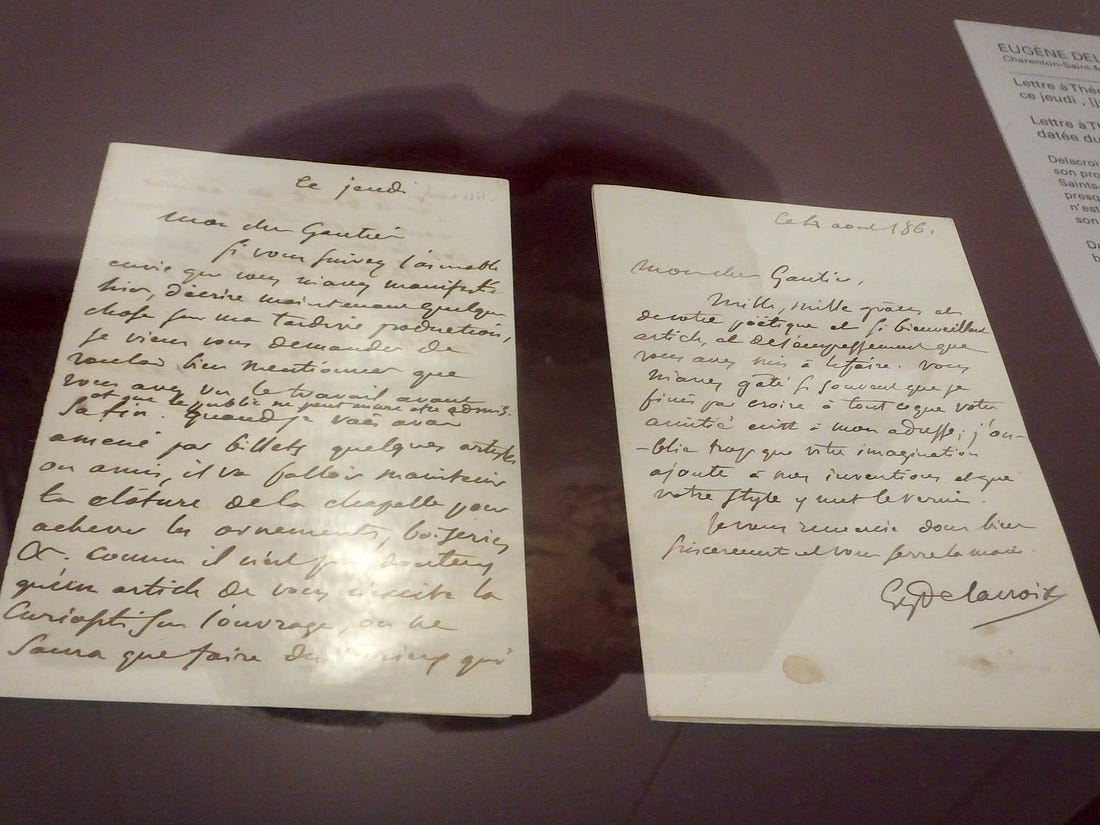 ce jeudi
mon cher Gautier
Si vous suivez l'aimable
envie que vous m'avez manifestée
hier, d'écrire maintenant quelque
chose sur ma tardive production,
je viens vous demander de
vouloir bien mentionner que
vous avez vu le travail avant
et que le public ne peut encore être admis.
sa fin. Quand je vous avais
amené par billets quelques artistes
ou amis, il va falloir maintenir
la clôture de la chapelle pour
achever les ornements, boiseries
&. Comme il n'est pas douteux
qu'un article de vous n'excite la
curiosité sur l'ouvrage, on ne
saura que faire des qui
Ce 4 aout 186.
Mon cher Gautier,
Mille, mille grâces et
de votre poëtique et si bienveillant
article et de l'empressement que
vous avez mis à le faire. Vous
m'avez gâté si souvent que je
finis par croire à tout ce que votre
amitié écrit à mon adresse ; j'ou-
-blie trop que votre imagination
ajoute à mes inventions et que
votre style y met le vernis.
Je vous remercie donc bien
sincerement et vous serre la main.
Eug Delacroix
EUGÈNE DEL
Charenton-Saint-M
Lettre à Théo
ce jeudi, [j
Lettre à Th
datée du
Delacroi
son pro
Saints-
presq
n'est
son
Da
b